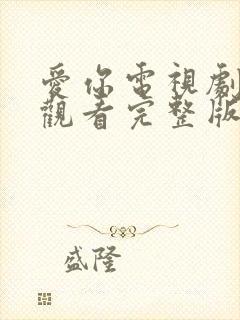 愛你電視劇
觀看完整版
盛隆